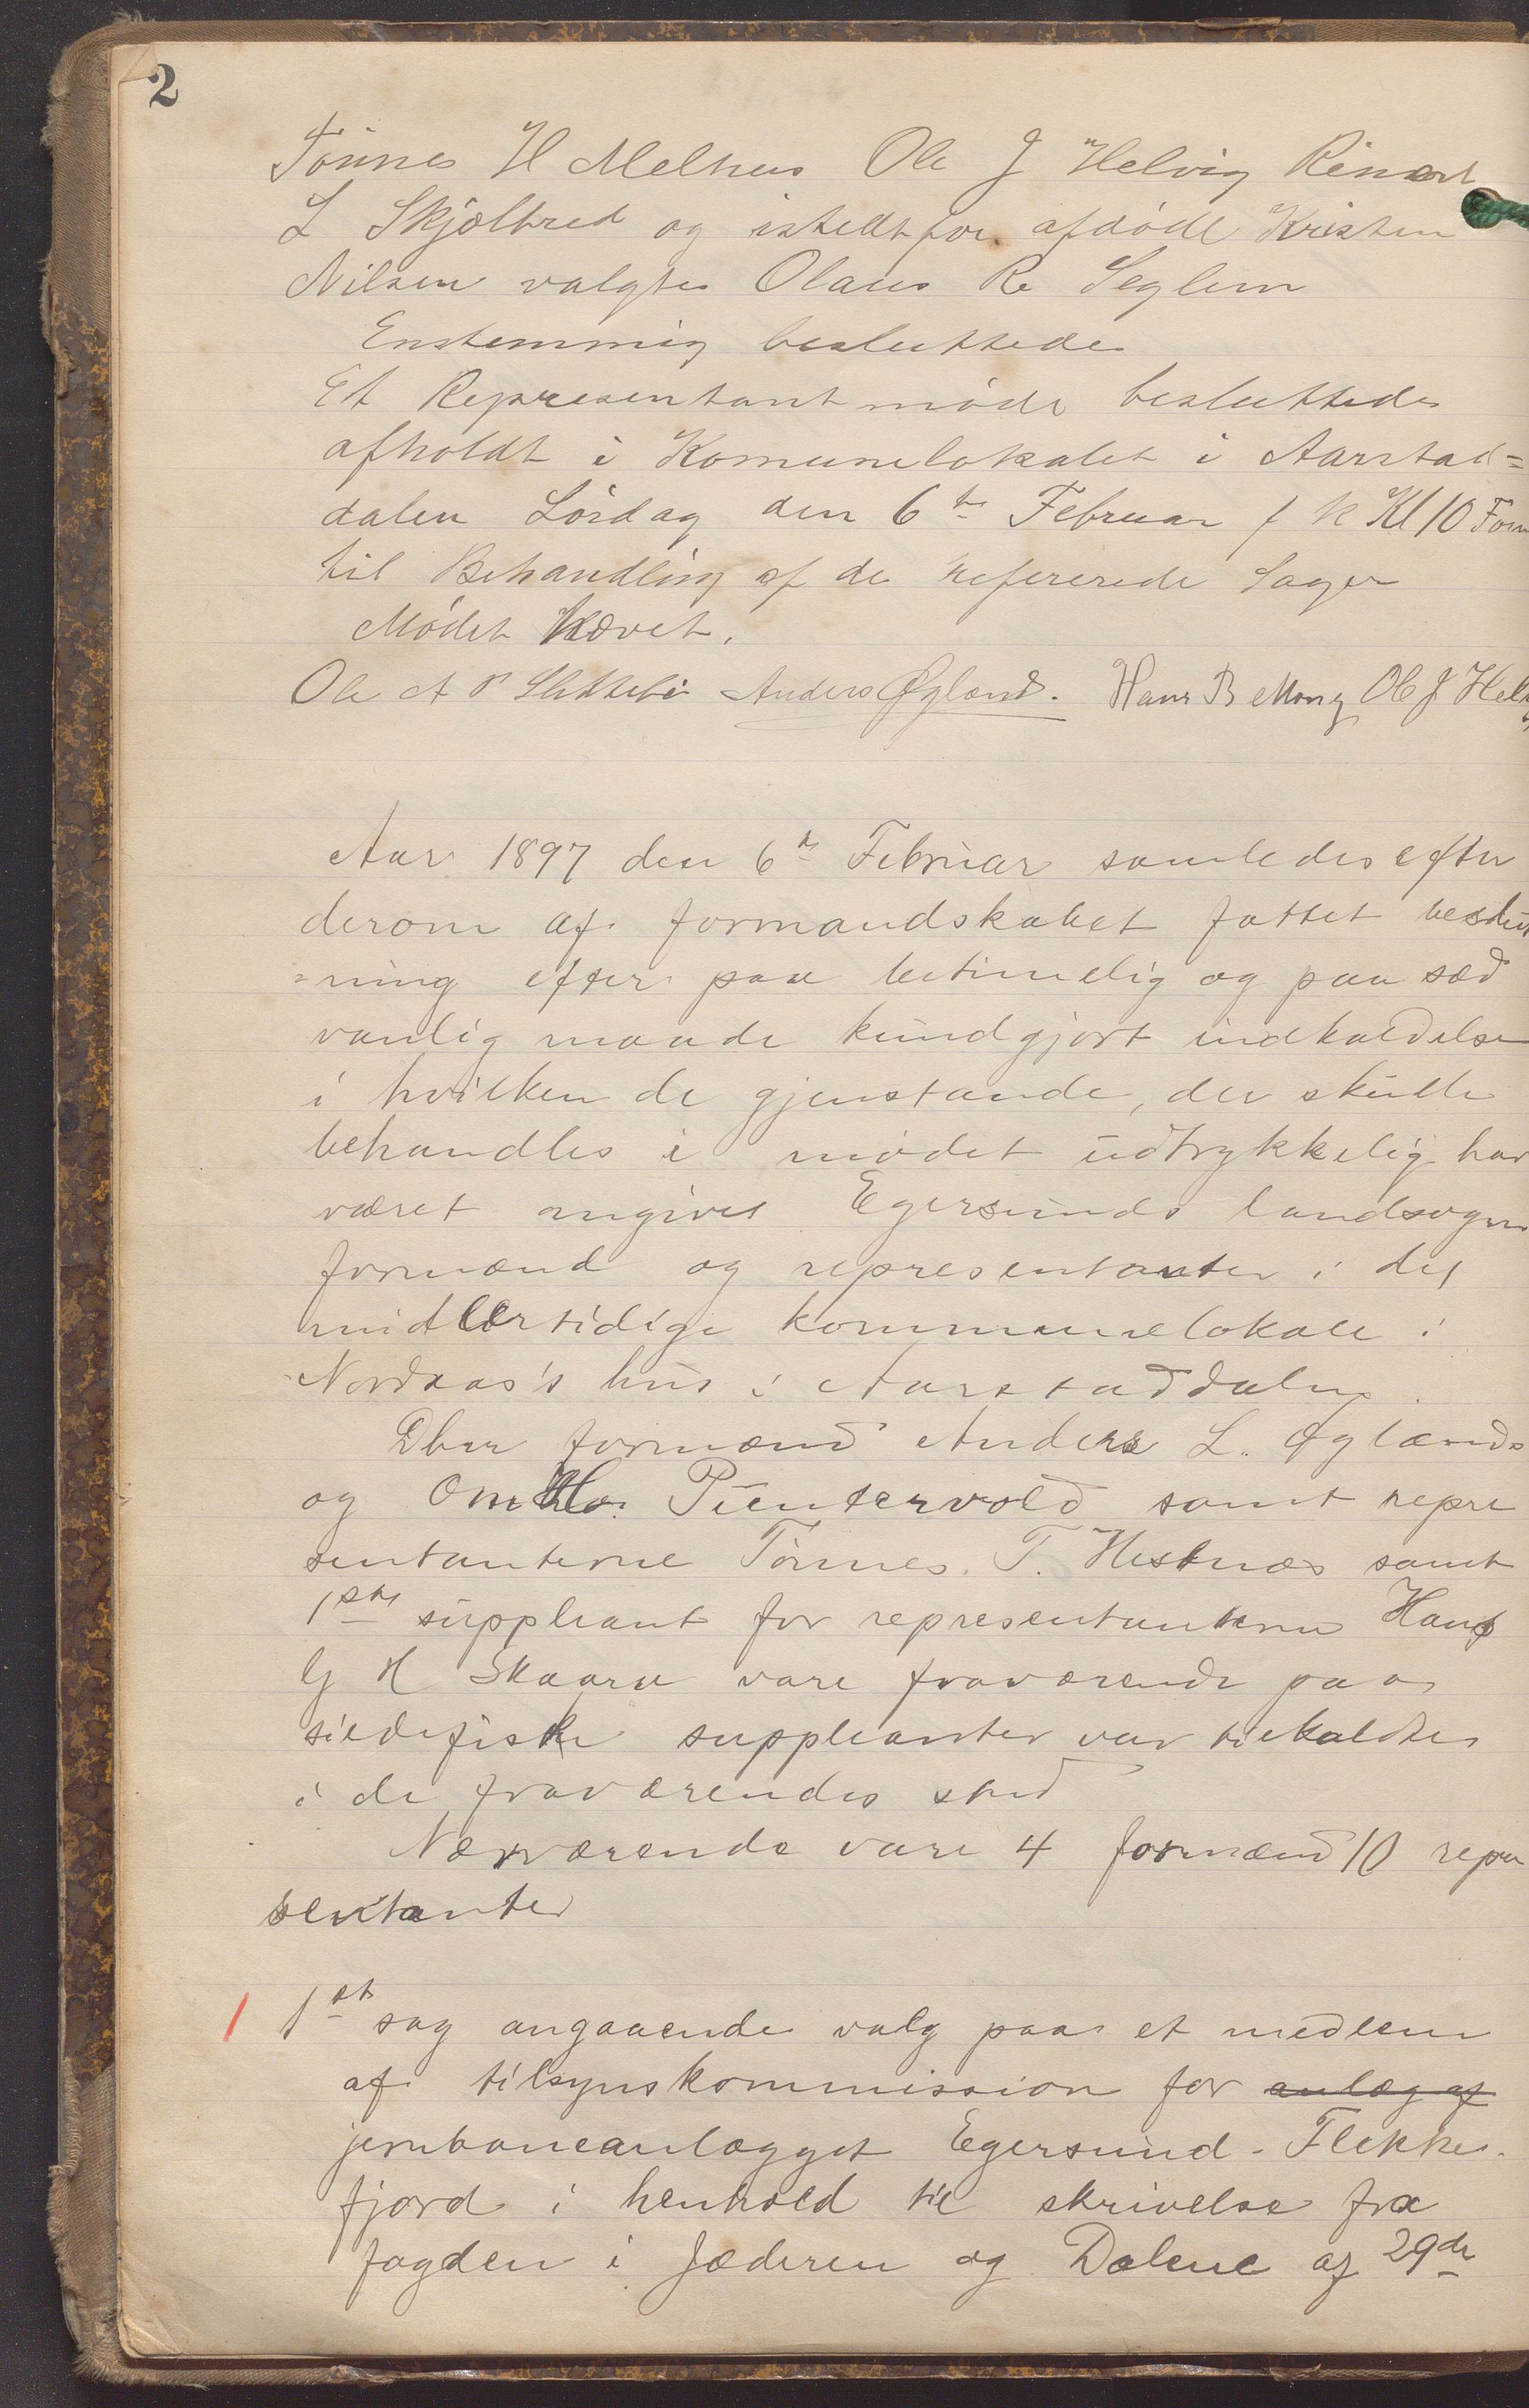 2
Tönnes H Melhus Ole J Helvig Rinert
L Skjælbred og istedtfor afdöde Kristen
Nilsen valgtes Olaus R Seglem
Enstemmig besluttedes
Et Representantmöde besluttedes
afholdt i Komunelokalet i Aarstad=
dalen Lördag den 6te Februar f k Kl 10 Form
til Behandling af de refererede Sager
Mödet hævet.
Ole A P Slettebö Anders Øglænd. Hans B Mong Ole J Helvig
Aar 1897 den 6te Februar samledes efter
derom af formandskabet fattet beslut
=ning efter paa betimelig og paa sæd
vanlig maade kundgjort indkaldelse
i hvilken de gjenstande, der skulle
behandles i mödet udtrykkelig har
været angivet Egersunds landsogns
formænd og representanter i det
midlertidige kommunelokale i
Nordaas's hus i Aarstaddalen.
Dhrr formænd Anders L. Øglænd
og Om Puntervold samt repre
sentanterne Tönnes. T. Hestnæs samt
1ste suppleant for representanterne Hans
G H Skaara vare fraværende paa
sildefiske suppleanter var tilkaldte
i de fraværendes sted
Nærværende vare 4 formænd 10 repre
sentanter
1 1st sag angaaende valg paa et medlem
af tilsynskommission for anlæg af
jernbaneanlægget Egersund-Flekke-
fjord i henhold til skrivelse fra
fogden i Jæderen og Dalene af 29de